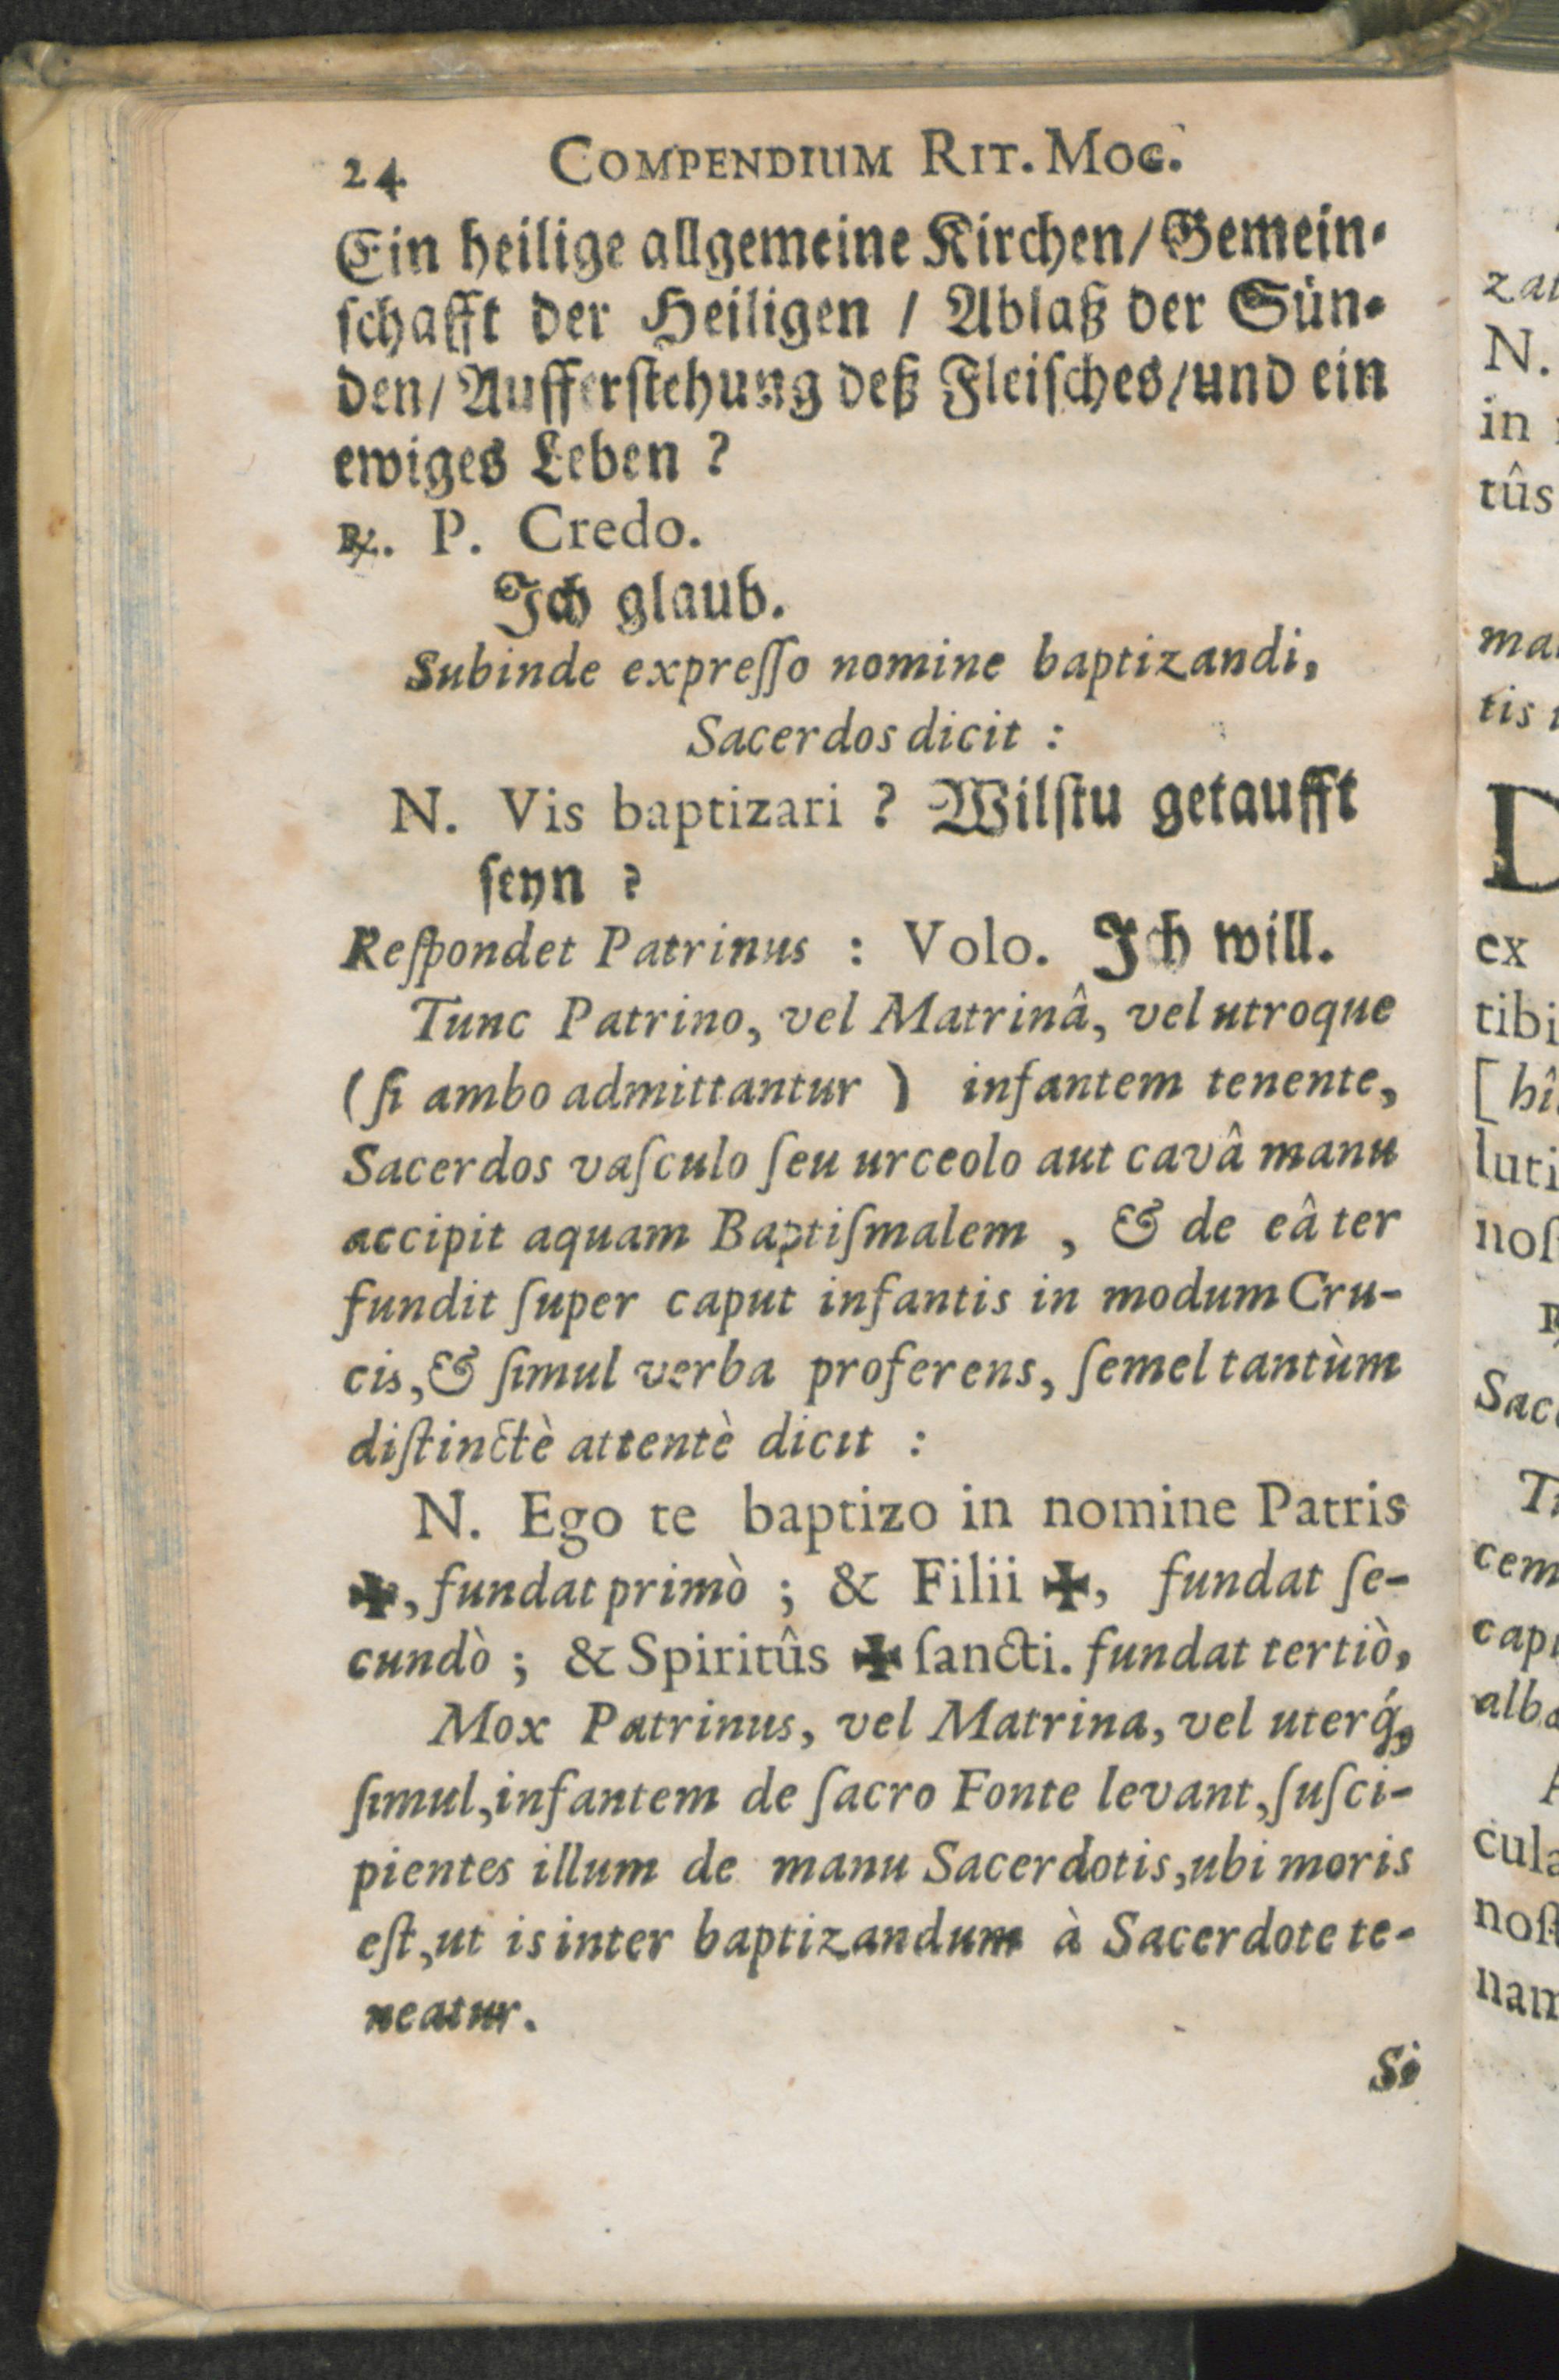 24 COMPENDIUM RIT. MOG.
Ein heilige allgemeine Kirchen/Gemein-
ſchafft der Heiligen / Ablaß der Sün-
den/ Aufferſtehung deß Fleiſches/und ein
ewiges Leben ?
℞. P. Credo.
Ich glaub.
Subinde expreſſo nomine baptizandi,
Sacerdos dicit :
N. Vis baptizari ? Wilſtu getaufft
ſeyn ?
Reſpondet Patrinus : Volo. Ich will.
Tunc Patrino, vel Matrinâ, vel utroque
(ſi ambo admittantur ) infantem tenente,
Sacerdos vaſculo ſeu urceolo aut cavâ manu
accipit aquam Baptiſmalem , & de eâ ter
fundit ſuper caput infantis in modum Cru-
cis,& ſimul verba proferens, ſemel tantùm
diſtinctè attentè dicit :
N. Ego te baptizo in nomine Patris
✠, fundat primò ; & Filii ✠, fundat ſe-
cundò ; & Spiritûs ✠ ſancti. fundat tertiò,
Mox Patrinus, vel Matrina, vel uterq́;
ſimul,infantem de ſacro Fonte levant,ſuſci-
pientes illum de manu Sacerdotis,ubi moris
eſt,ut is inter baptizandum à Sacerdote te-
neatur.
Si
zat
N.
in
tûs
ma
tis
D
ex
tibi
[hî
luti
noſ
Sac
cem
cap
alba
cula
noſt
nam